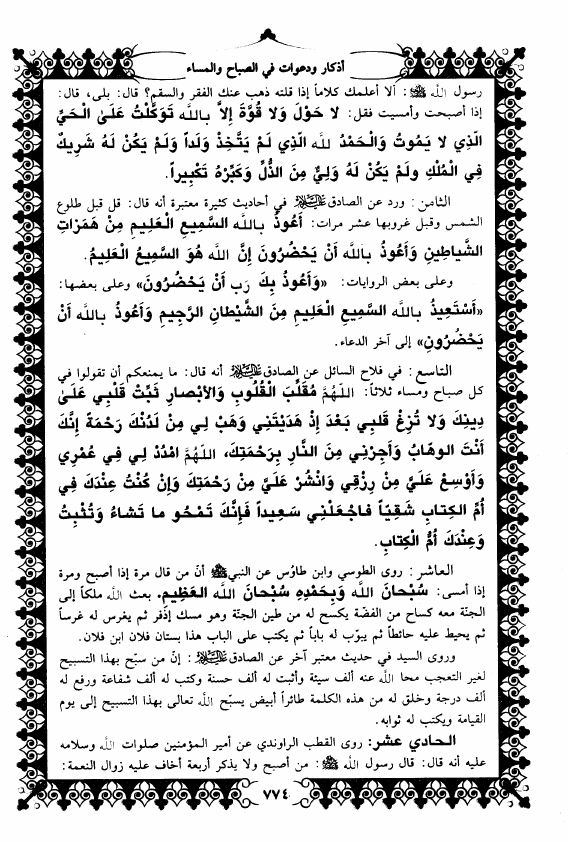 أذكار ودعوات في الصباح والمساء
رسول الله ﷺ: ألا أعلمك كلاماً إذا قلته ذهب عنك الفقر والسقم؟ قال: بلى، قال:
إذا أصبحت وأمسيت فقل: لا حَوْلَ وَلا قُوَّةَ إِلاَّ بالله تَوَكَّلْتُ عَلىٰ الْحَيِّ
الَّذِي لا يَمُوتُ وَالْحَمْدُ لله الَّذِي لَمْ يَتَّخِذْ وَلَداً وَلَمْ يَكُنْ لَهُ شَرِيكٌ
فِي الْمُلْكِ ولَمْ يَكُنْ لَهُ وَلِيٌّ مِنَ الذُّلِّ وَكَبِّرْهُ تَكْبِيراً.
الثامن: ورد عن الصادق عليه السلام في أحاديث كثيرة معتبرة أنه قال: قل قبل طلوع
الشمس وقبل غروبها عشر مرات: أَعُوذُ بالله السَّمِيعِ الْعَلِيمِ مِنْ هَمَزاتِ
الشَّياطِينِ وَأَعُوذُ بالله أَنْ يَحْضُرُونَ إِنَّ الله هُوَ السَّمِيعُ الْعَلِيمُ.
وعلى بعض الروايات: «وَأَعُوذُ بِكَ رَب أَنْ يَحْضُرُونَ» وعلى بعضها:
«أَسْتَعِيذُ بالله السَّمِيعِ الْعَلِيمِ مِنَ الشَّيْطانِ الرَّجِيمِ وَأَعُوذُ بالله أَنْ
يَحْضُرُونِ» إلى آخر الدعاء.
التاسع: في فلاح السائل عن الصادق عليه السلام أنه قال: ما يمنعكم أن تقولوا في
كل صباح ومساء ثلاثاً: اللهُمَّ مُقَلِّبَ الْقُلُوبِ وَالأبْصارِ ثَبِّتْ قَلْبِي عَلىٰ
دِينِكَ وَلا تُزِغْ قَلبِي بَعْدَ إِذْ هَدَيْتَنِي وَهَبْ لِي مِنْ لَدُنْكَ رَحْمَةً إِنَّكَ
أَنْتَ الوهَّابُ وَأَجِرْنِي مِنَ النَّارِ بِرَحْمَتِكَ، اللهُمَّ امْدُدْ لِي فِي عُمْرِي
وَأَوْسِعْ عَلَيَّ مِنْ رِزْقِي وَانْشُرْ عَلَيَّ مِنْ رَحْمَتِكَ وَإِنْ كُنْتُ عِنْدَكَ فِي
أُمِّ الْكِتابِ شَقِيّاً فَاجْعَلْنِي سَعِيداً فَإِنَّكَ تَمْحُو ما تَشاءُ وَتُثْبِتُ
وَعِنْدَكَ أُمُّ الْكِتابِ.
العاشر: روى الطوسي وابن طاوُس عن النبي ﷺ أنّ من قال مرة إذا أصبح ومرة
إذا أمسى: سُبْحَانَ الله وَبِحَمْدِهِ سُبْحَانَ الله العَظِيم، بعث الله ملكاً إلى
الجنّة معه كساح من الفضّة يكسح له من طين الجنّة وهو مسك إذفر ثم يغرس له غرساً
ثم يحيط عليه حائطاً ثم يبوّب له باباً ثم يكتب على الباب هذا بستان فلان ابن فلان.
وروى السيد في حديث معتبر آخر عن الصادق عليه السلام: إنّ من سبّح بهذا التسبيح
لغير التعجب محا الله عنه ألف سيئة وأثبت له ألف حسنة وكتب له ألف شفاعة ورفع له
ألف درجة وخلق له من هذه الكلمة طائراً أبيض يسبّح الله تعالى بهذا التسبيح إلى يوم
القيامة ويكتب له ثوابه.
الحادي عشر: روى القطب الراوندي عن أمير المؤمنين صلوات الله وسلامه
عليه أنه قال: قال رسول الله ﷺ: من أصبح ولا يذكر أربعة أخاف عليه زوال النعمة:
٧٧٤